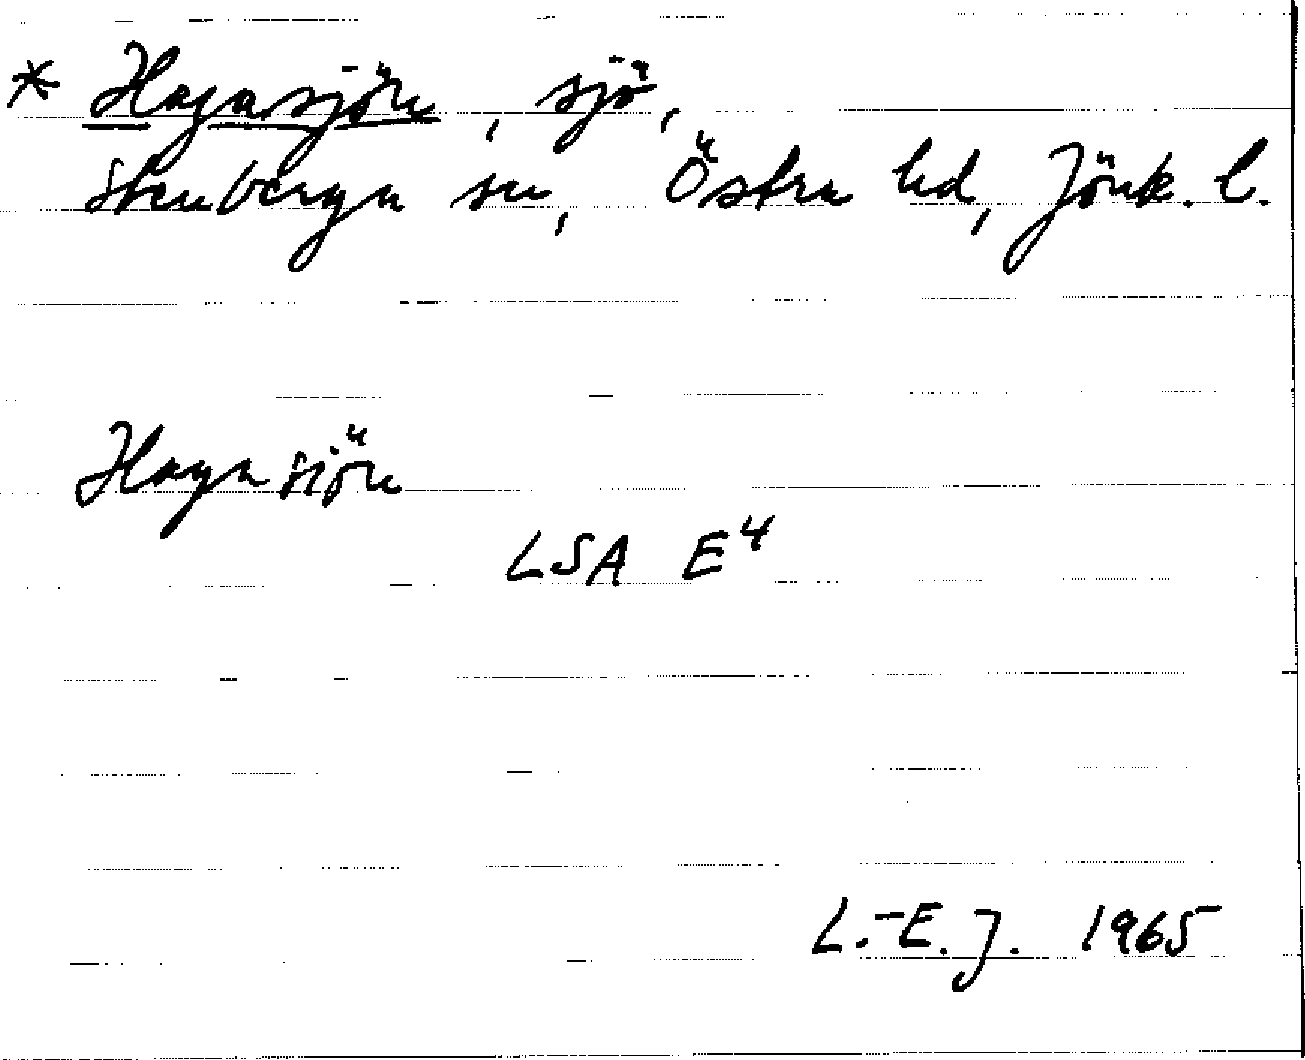 * Hagasjön, sjö,
Stenberga sn, Östra hd, Jönk. l.
Hagasjön
LSA E4
L.-E. J. 1965